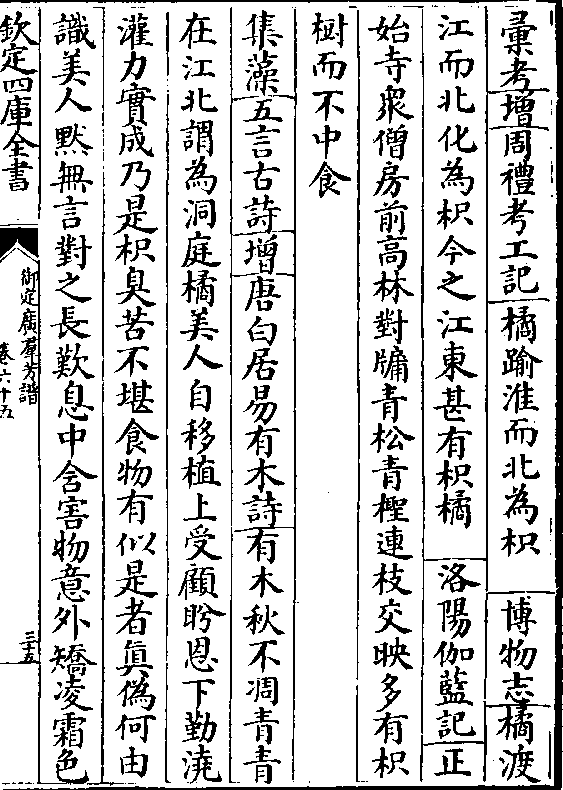 彙考增周禮考工記橘踰淮而北為枳　博物志橘渡
江而北化為枳今之江東甚有枳橘　洛陽伽藍記正
始寺衆僧房前高林對牖青松青檉連枝交映多有枳
樹而不中食
集藻五言古詩增唐白居易有木詩有木秋不凋青青
在江北謂為洞庭橘美人自移植上受顧盻恩下勤澆
灌力實成乃是枳臭苦不堪食物有似是者真偽何由
識美人默無言對之長歎息中含害物意外矯凌霜色
欽定四庫全書
御定廣羣芳譜
卷六十五
三十五